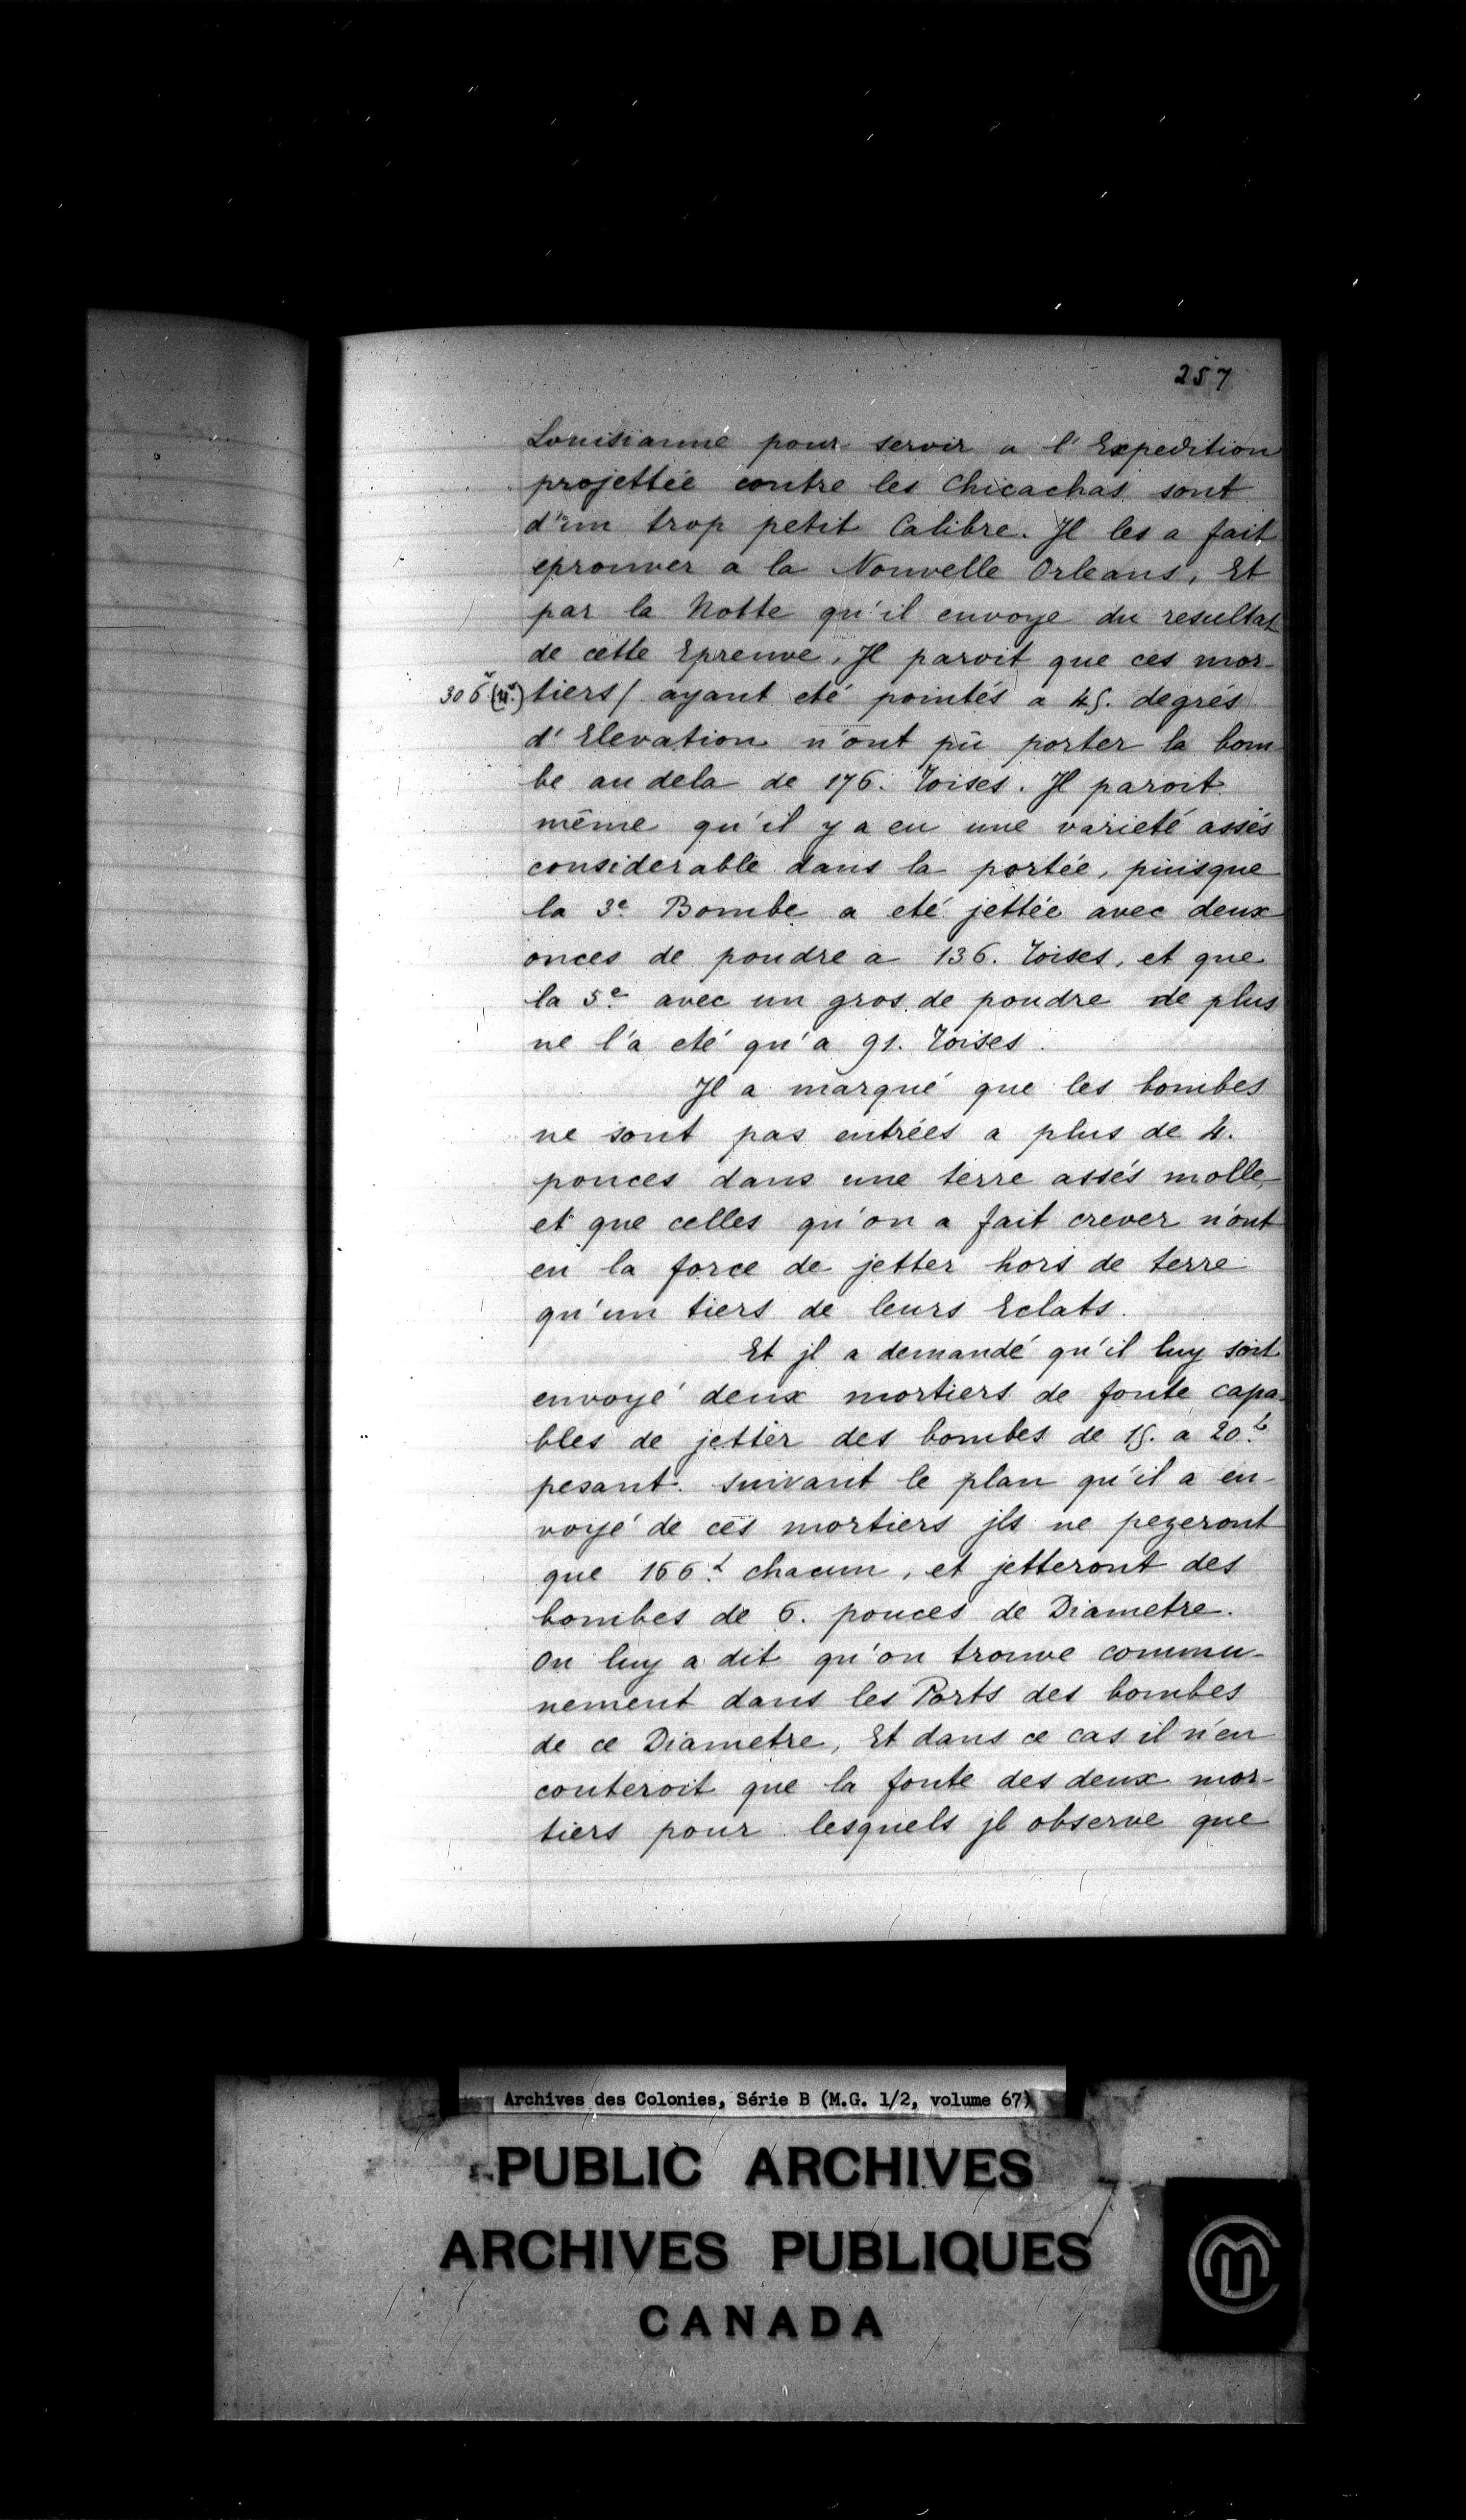 257
Louisianne pour servir a l'Expedition
projettée contre les Chicachas sont
d'un trop petit Calibre. Jl les a fait
eprouver a la Nouvelle Orleans, Et
par la Notte qu'il envoye du resultat
de cette Epreuve, Jl paroit que ces mor-
306 tiers/ ayant eté pointés a 45. degrés
d'Elevation n'ont pû porter la bom-
be au dela de 176. Toises. Jl paroit
même qu'il y a eu une varieté assés
considerable dans la portée, puisque
la 3e Bombe a eté jettée avec deux
onces de poudre a 136. Toises, et que
la 5e avec un gros de poudre de plus
ne l'a eté qu'a 91. Toises.
Jl a marqué que les bombes
ne sont pas entrées a plus de 4.
pouces dans une terre assés molle,
et que celles qu'on a fait crever n'ont
eu la force de jetter hors de terre
qu'un tiers de leurs Eclats.
Et jl a demandé qu'il luy soit
envoyé deux mortiers de fonte capa-
bles de jetter des bombes de 15. a 20.L
pesant. suivant le plan qu'il a en-
voyé de ces mortiers jls ne pezeront
que 166.L chacun, et jetteront des
bombes de 6. pouces de Diametre.
On luy a dit qu'on trouve commu-
nement dans les Ports des bombes
de ce Diametre, Et dans ce cas il n'en
couteroit que la fonte des deux mor-
tiers pour lesquels jl observe que
Archives des Colonies, Série B (M.G. 1/2, volume 67)
PUBLIC ARCHIVES
ARCHIVES PUBLIQUES
CANADA